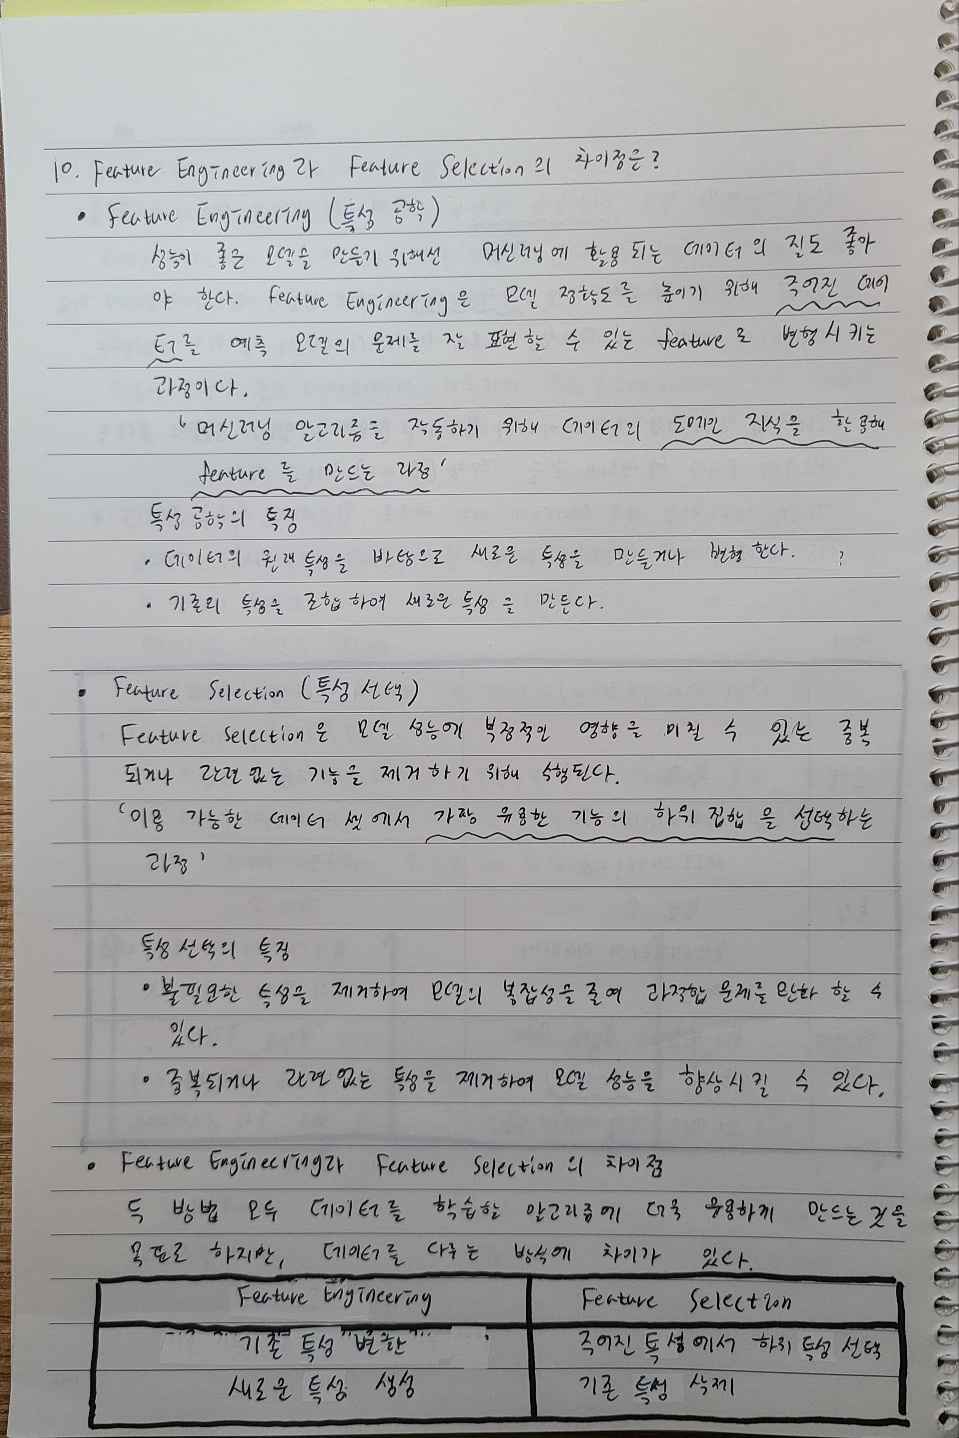 10. Feature Engineering과 Feature Selection의 차이점은?
• Feature Engineering (특성 공학)
성능이 좋은 모델을 만들기 위해선 머신러닝에 활용되는 데이터의 질도 좋아
야 한다. Feature Engineering은 모델 정확도를 높이기 위해 주어진 데이
터를 예측 모델의 문제를 잘 표현할 수 있는 feature로 변형시키는
과정이다.
'머신러닝 알고리즘을 작동하기 위해 데이터의 도메인 지식을 활용해
feature를 만드는 과정'
특성공학의 특징
• 데이터의 원래 특성을 바탕으로 새로운 특성을 만들거나 변형한다. ?
• 기존의 특성을 조합하여 새로운 특성을 만든다.
• Feature Selection (특성 선택)
Feature Selection은 모델 성능에 부정적인 영향을 미칠 수 있는 중복
되거나 관련 없는 기능을 제거하기 위해 수행된다.
'이용 가능한 데이터 셋에서 가장 유용한 기능의 하위 집합을 선택하는
과정'
특성 선택의 특징
• 불필요한 특성을 제거하여 모델의 복잡성을 줄여 과적합 문제를 완화 할 수
있다.
• 중복되거나 관련 없는 특성을 제거하여 모델 성능을 향상시킬 수 있다.
• Feature Engineering과 Feature Selection의 차이점
두 방법 모두 데이터를 학습할 알고리즘에 더욱 유용하게 만드는 것을
목표로 하지만, 데이터를 다루는 방식에 차이가 있다.
Feature Engineering Feature Selection
기존 특성 변환 주어진 특성에서 하위 특성 선택
새로운 특성 생성 기존 특성 삭제